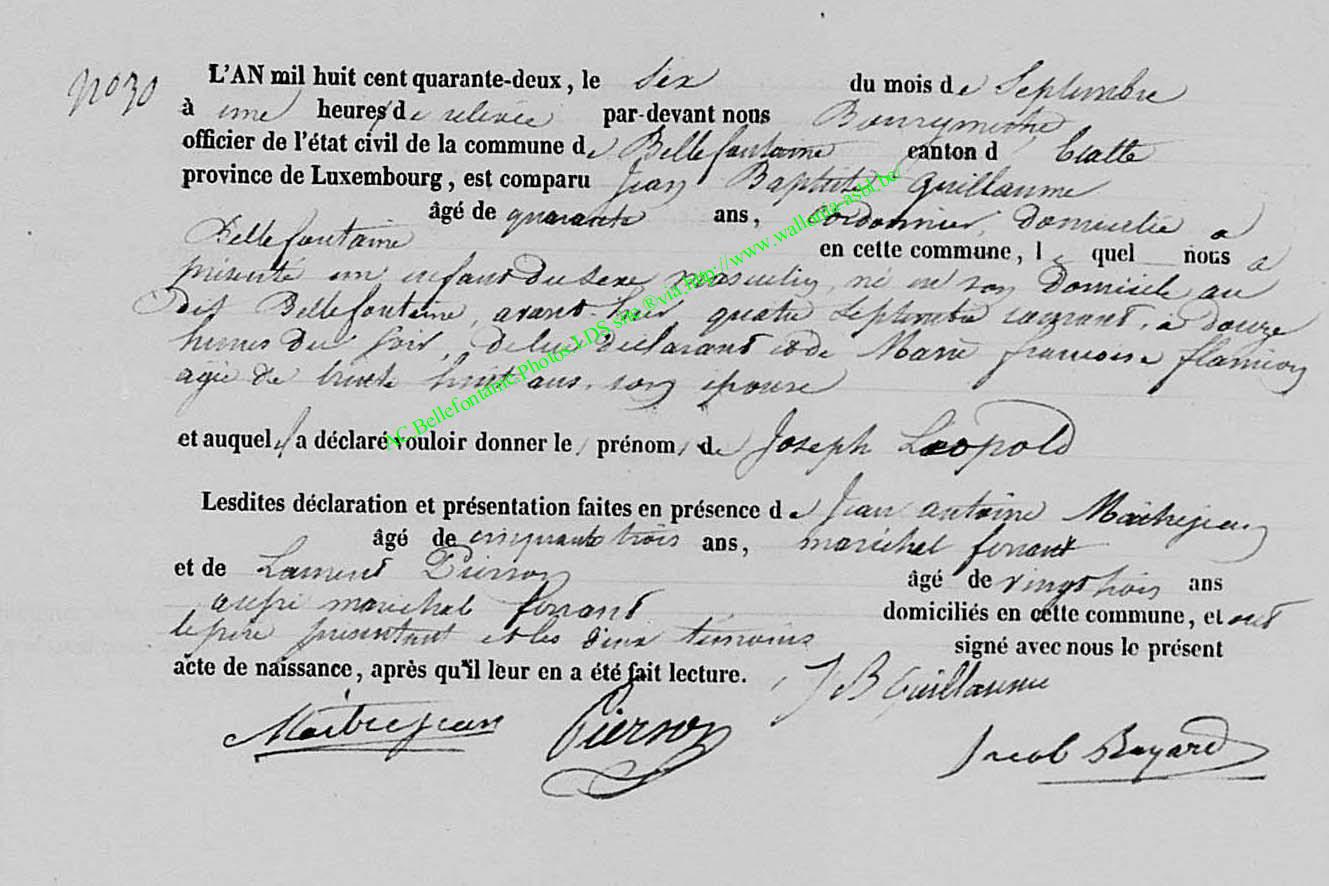 No 30
L'AN mil huit cent quarante-deux, le six du mois de Septembre
à une heures de relevée par-devant nous Bourgmestre
officier de l'état civil de la commune de Bellefontaine canton d' Etalle
province de Luxembourg, est comparu Jean Baptiste Guillaume
âgé de quarante ans, cordonnier, domicilié a
Bellefontaine en cette commune, lequel nous a
présenté un enfant du sexe masculin, né en son domicile au
dit Bellefontaine, avant-hier quatre Septembre courant, à douze
heures du soir, de lui déclarant et de Marie françoise flamion
agée de trente huit ans, son épouse
et auquel il a déclaré vouloir donner le prénom de Joseph Léopold
Lesdites déclaration et présentation faites en présence de Jean antoine Maitrejean
âgé de cinquante trois ans, maréchal ferrant
et de Laurent Pierson âgé de vingt trois ans
aussi maréchal ferrant domiciliés en cette commune, et ont
le père présentant et les deux témoins signé avec nous le présent
acte de naissance, après qu'il leur en a été fait lecture. J B Guillaume
Maitrejean Pierson Jacob Bayard
AC.Bellefontaine.Photos.LDS site ®via.http://www.wallonia-asbl.be/